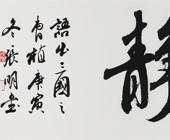 靜
語出三國之
曹植庚寅
冬張明